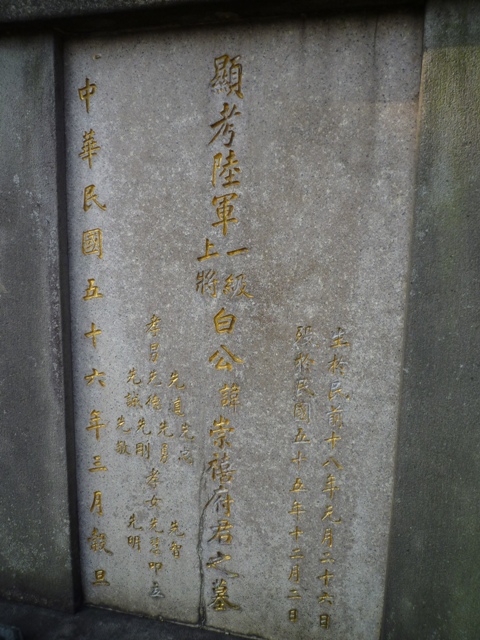 生於民前十八年元月二十六日
殁於民國五十五年十二月二日
顯考陸軍一級上將白公諱崇禧府君之墓
先道先忠
先智
孝男先德先勇孝女先慧叩立
先誠先剛
先明
先敬
中華民國五十六年三月穀旦